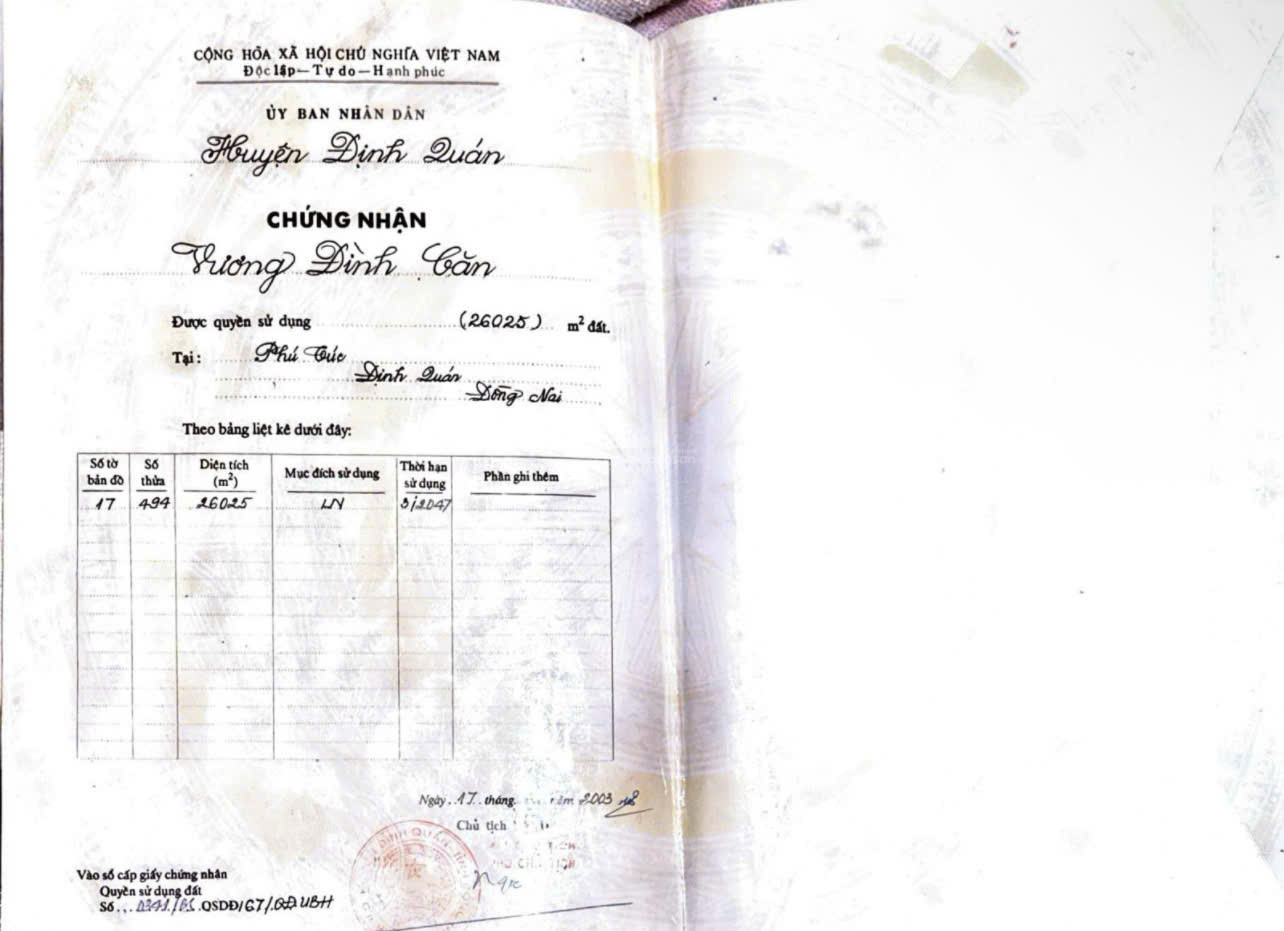 CỘNG HÒA XÃ HỘI CHỦ NGHĨA VIỆT NAM
Độc lập—Tự do—Hạnh phúc
ỦY BAN NHÂN DÂN
Huyện Định Quán
CHỨNG NHẬN
Vương Đình Căn
Được quyền sử dụng (26025) m² đất.
Tại: Phú Túc
Định Quán
Đồng Nai
Theo bảng liệt kê dưới đây:
Số tờ bản đồ Số thửa Diện tích (m²) Mục đích sử dụng Thời hạn sử dụng Phần ghi thêm
17 494 26025 LN 3/2047
Ngày 17 tháng năm 2003
Chủ tịch
Vào sổ cấp giấy chứng nhận
Quyền sử dụng đất
Số QSDĐ/67/QĐUBH